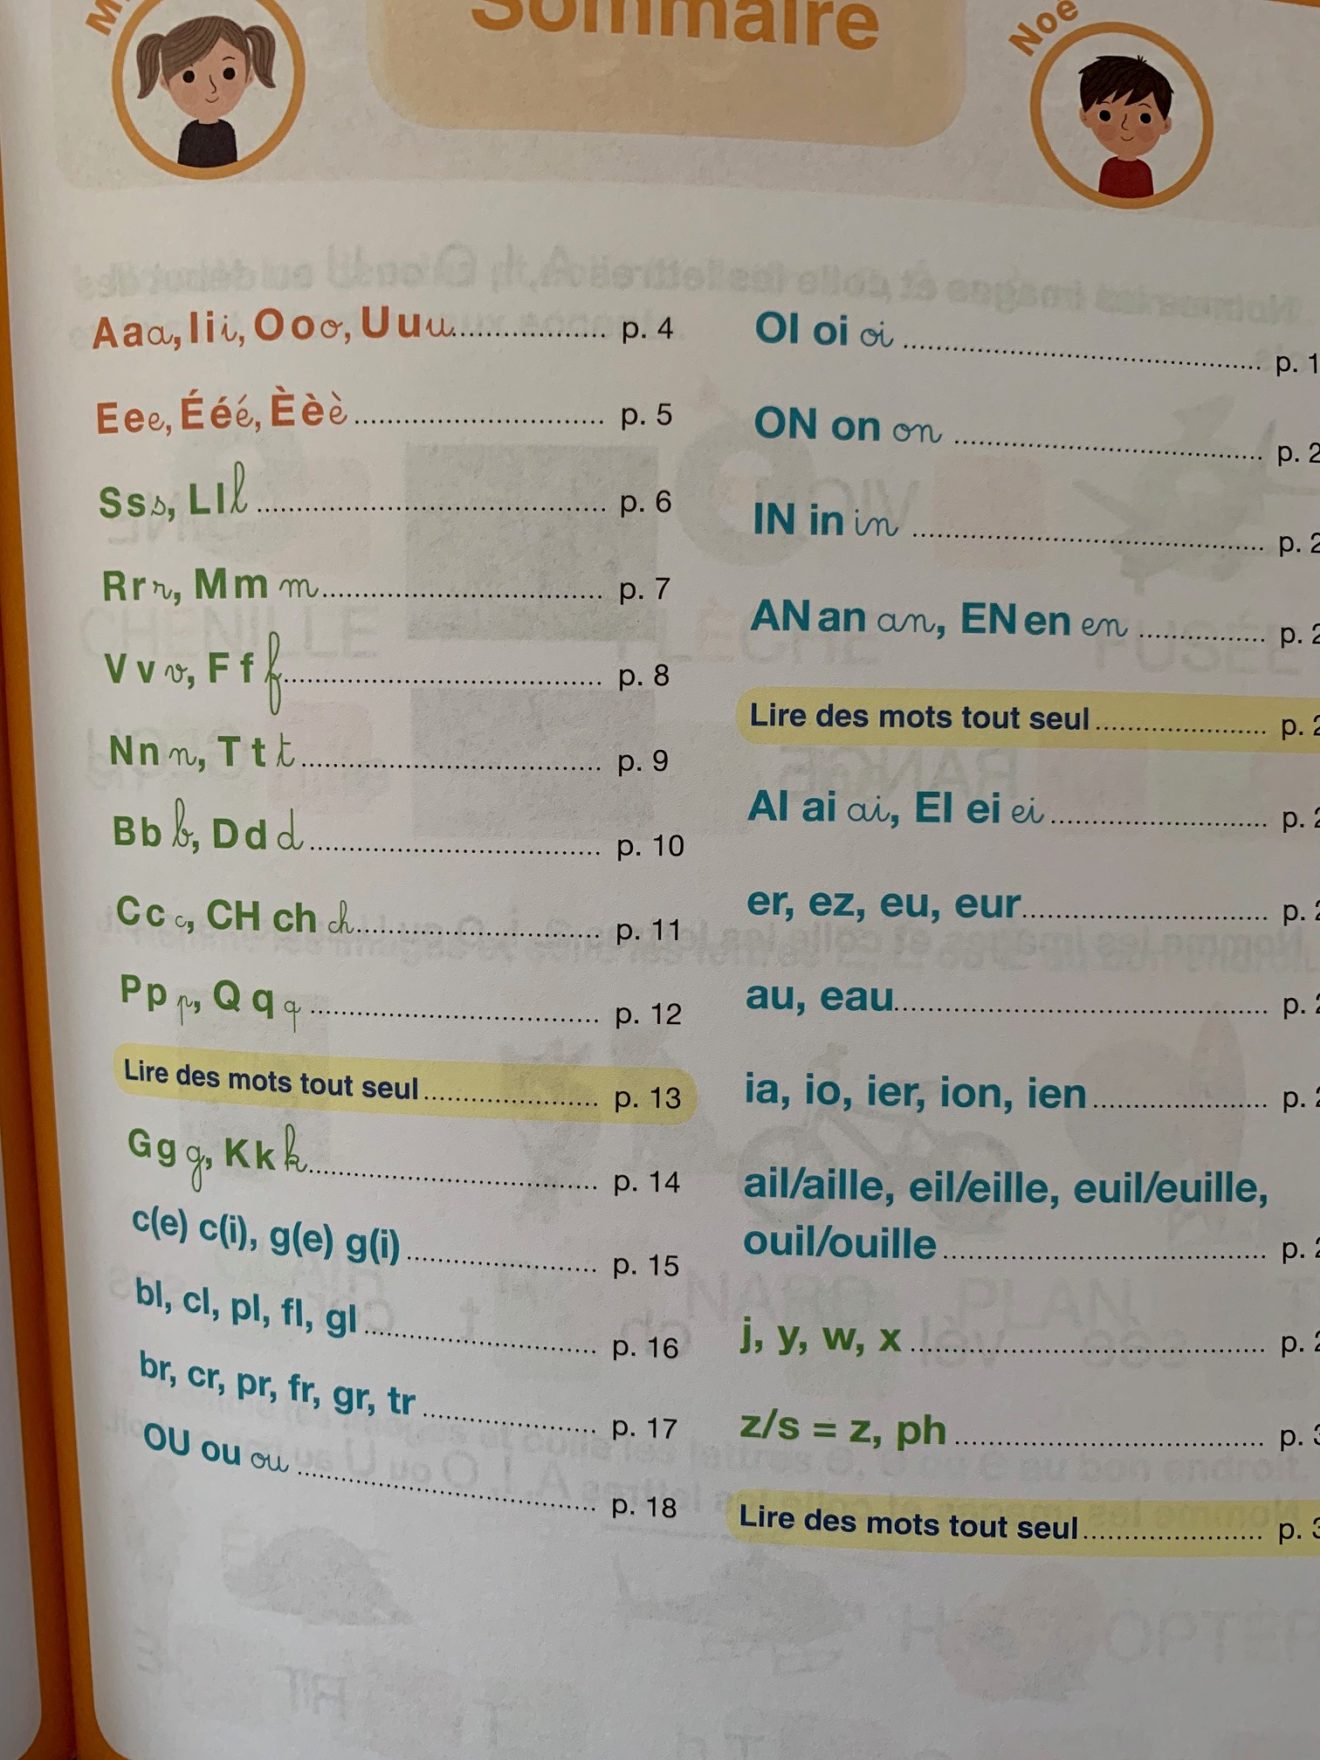 Sommaire
Noé
Aa a, Ii i, Oo o, Uu u p. 4
Ee e, Éé é, Èè è p. 5
Ss s, Ll l p. 6
Rr r, Mm m p. 7
Vv v, Ff f p. 8
Nn n, Tt t p. 9
Bb b, Dd d p. 10
Cc c, CH ch ch p. 11
Pp p, Qq q p. 12
Lire des mots tout seul p. 13
Gg g, Kk k p. 14
c(e) c(i), g(e) g(i) p. 15
bl, cl, pl, fl, gl p. 16
br, cr, pr, fr, gr, tr p. 17
OU ou ou p. 18
OI oi oi p. 1
ON on on p. 2
IN in in p. 2
AN an an, EN en en p. 2
Lire des mots tout seul p. 2
AI ai ai, EI ei ei p. 2
er, ez, eu, eur p. 2
au, eau p. 2
ia, io, ier, ion, ien p. 2
ail/aille, eil/eille, euil/euille,
ouil/ouille p. 2
j, y, w, x p. 2
z/s = z, ph p. 3
Lire des mots tout seul p. 3